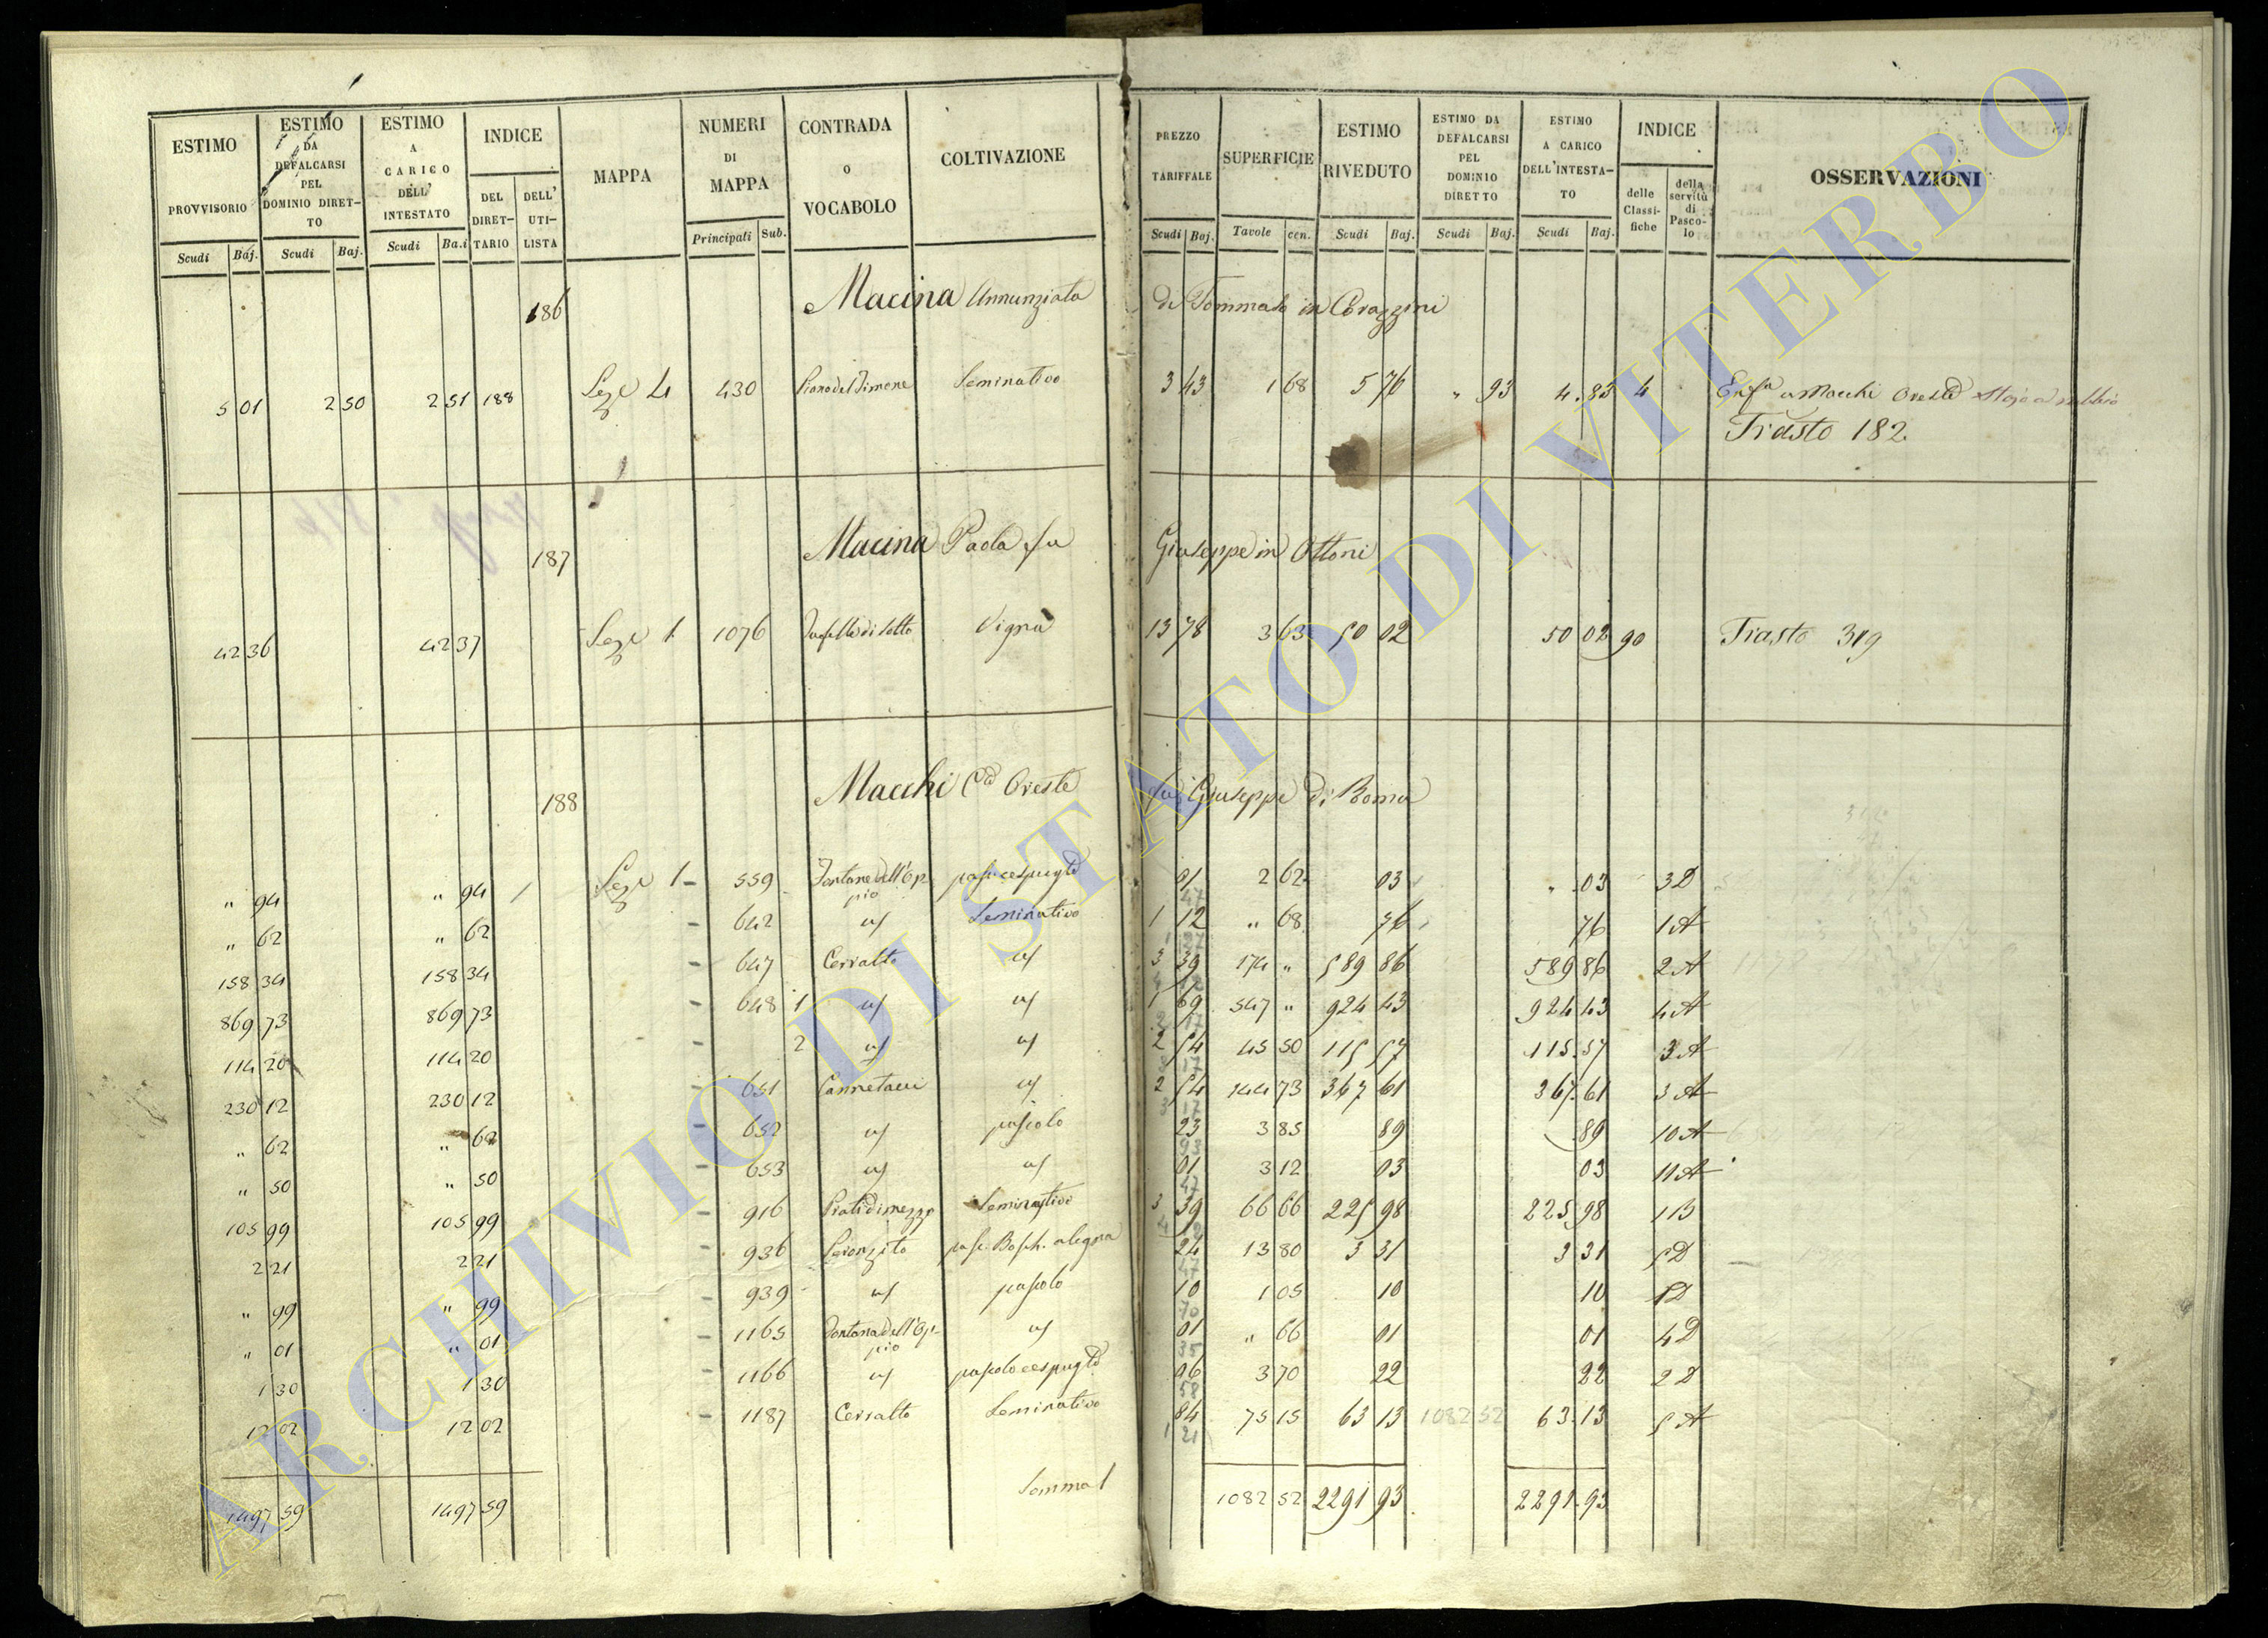 ESTIMO PROVVISORIO Scudi Baj. ESTIMO DA DEFALCARSI PEL DOMINIO DIRETTO Scudi Baj. ESTIMO A CARICO DELL' INTESTATO Scudi Ba.i INDICE DEL DIRETTARIO DELL' UTILISTA MAPPA NUMERI DI MAPPA Principali Sub. CONTRADA o VOCABOLO COLTIVAZIONE PREZZO TARIFFALE Scudi Baj. SUPERFICIE Tavole cen. ESTIMO RIVEDUTO Scudi Baj. ESTIMO DA DEFALCARSI PEL DOMINIO DIRETTO Scudi Baj. ESTIMO A CARICO DELL'INTESTATO Scudi Baj. INDICE delle Classifiche della servitù di Pascolo OSSERVAZIONI
186 Macina Annunziata di Tommaso in Corazzini
5 01 2 50 2 51 188 Seze 4 430 Piano del Simone Seminativo 3 43 1 68 5 76 " 93 4.83 4 Enfa a Macchi Oreste
Trasto 182
187 Macina Paola fu Giuseppe in Ottoni
42 36 42 37 Seze 1 1076 di sotto Vigna 13 78 3 63 50 02 50 02 90 Trasto 319
188 Macchi Cte Oreste fu Giuseppe di Roma
" 94 " 94 / Seze 1 - 559 Fontana dell'Oppio pasc. cespugto 01 2 62 03 " 03 3D
" 62 " 62 - 642 " Seminativo 1 12 " 68 76 76 1A
158 34 158 34 - 647 Cerralto " 3 39 174 " 589 86 589 86 2A
869 73 869 73 - 648 1 " " 1 69 547 " 924 43 924 43 4A
114 20 114 20 - 2 " " 2 54 45 50 115 57 115.57 3A
230 12 230 12 - 651 Cannetacci " 2 54 144 73 367 61 367.61 3A
" 62 " 62 - 652 " pascolo 23 3 85 89 89 10A
" 50 " 50 - 653 " " 01 3 12 03 03 11A
105 99 105 99 - 916 Prati di mezzo Seminativo 3 39 66 66 225 98 225 98 1B
2 21 2 21 - 936 pasc. Bosch. a legna 24 13 80 3 31 3 31 5D
" 99 " 99 - 939 " pascolo 10 1 05 10 10 1D
" 01 " 01 - 1165 Fontana dell'Oppio " 01 " 66 01 01 4D
1 30 1 30 - 1166 " pascolo cespugto 06 3 70 22 22 2D
12 02 12 02 - 1187 Cerralto Seminativo 84 75 15 63 13 1082 52 63.13 5A
1497 59 1497 59 Somma 1082 52 2291 93 2291.93
ARCHIVIO DI STATO DI VITERBO